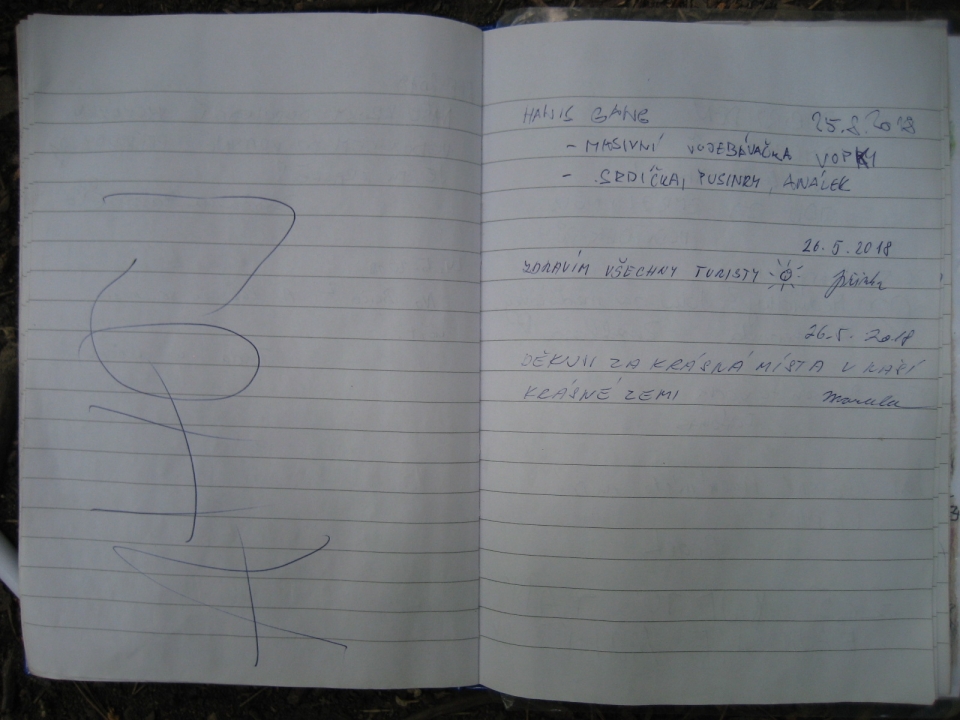 HANIS GANG 25.5.2018
- MASIVNÍ VOJEBÁVAČKA VOPKY
- SRDÍČKA, PUSINKY, ANÁLEK
26.5.2018
ZDRAVÍM VŠECHNY TURISTY
26.5. 2018
DĚKUJI ZA KRÁSNÁ MÍSTA V NAŠÍ
KRÁSNÉ ZEMI